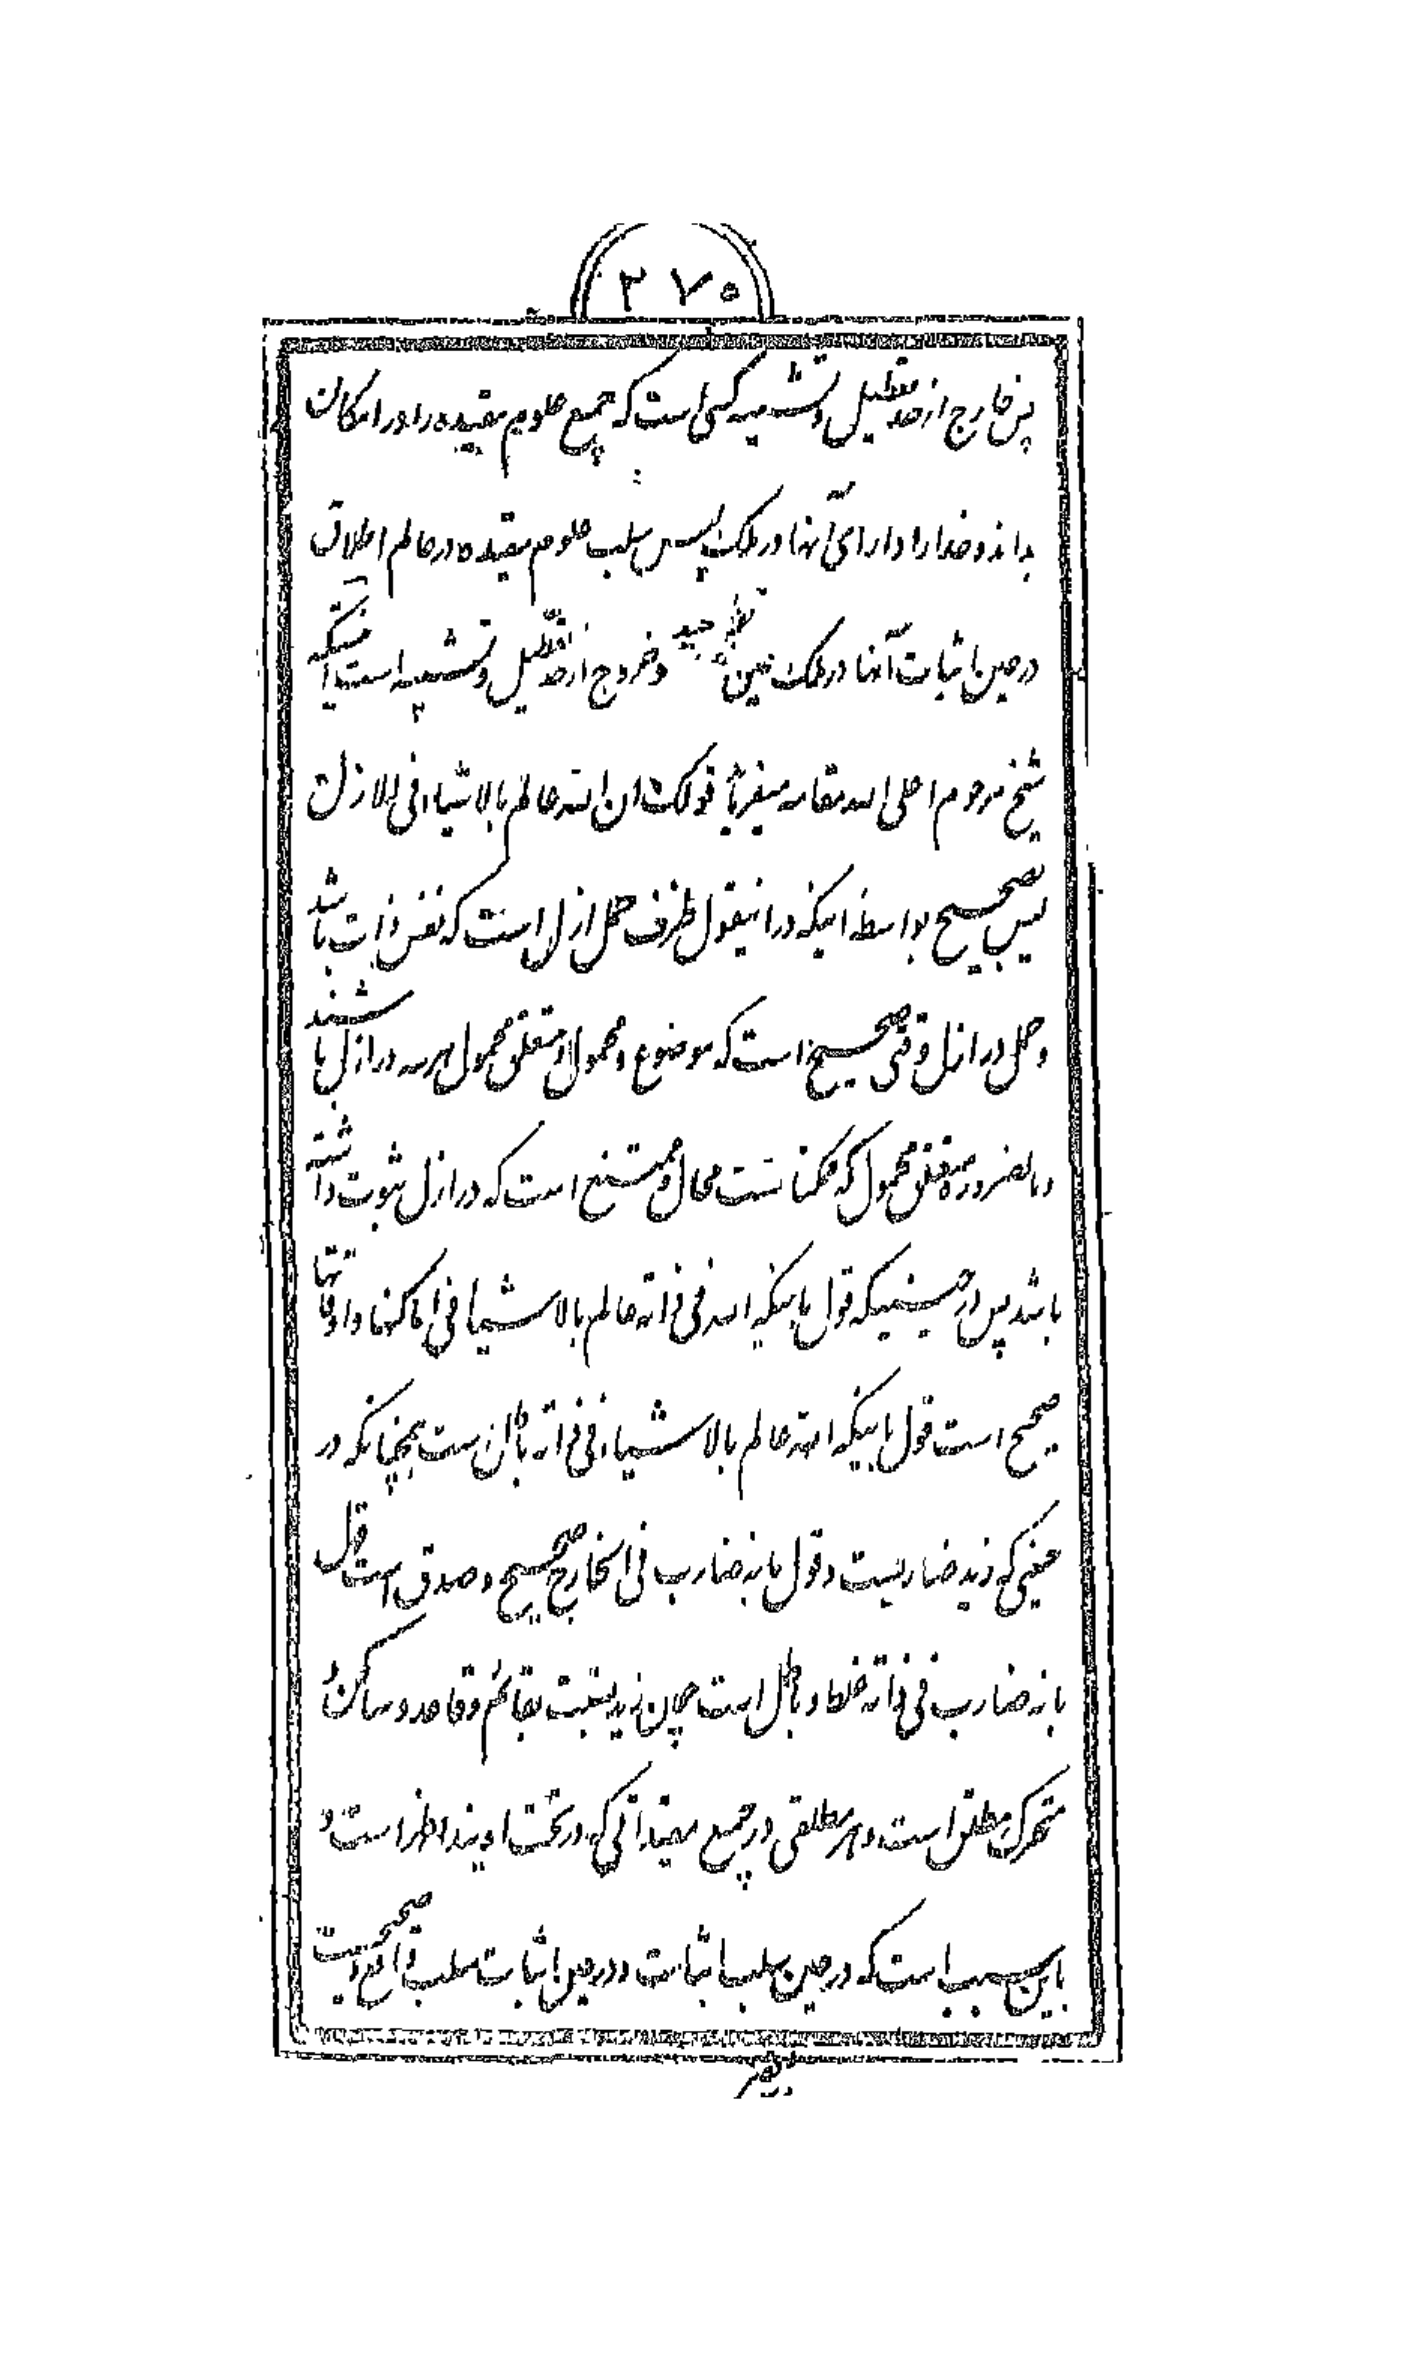 ۲۷۵
پس خارج از حد تعطیل و تشبیه کسی است که جمیع علوم مقیده را در امکان
بداند و خدا را دارای آنها در ملک پس سلب علوم مقیده در عالم اطلاق
در حین اثبات آنها در ملک عین توحید و خروج از حد تعطیل و تشبیه است اینستکه
شیخ مرحوم اعلی الله مقامه میفرماید قولک ان الله عالم بالاشیاء فی الازل
لیس بصحیح بواسطه اینکه در اینقول ظرف حمل ازل است که نفس ذات باشد
و حمل در ازل وقتی صحیح است که موضوع و محمول و متعلق محمول همه در ازل باشند
و بالضروره متعلق محمول که ممکنات است محال و ممتنع است که در ازل ثبوت داشته
باشد پس در حینیکه قول باینکه الله فی ذاته عالم بالاشیا فی اماکنها و اوقاتها
صحیح است قول باینکه الله عالم بالاشیاء فی ذاته باطل است همچنانکه در
حینی که زید ضاربست و قول بانه ضارب فی الخارج صحیح و صدق است قول
بانه ضارب فی ذاته غلط و باطل است چون زید بنسبت بقائم و قاعد و ساکن و
متحرک مطلق است و هر مطلقی در جمیع مقیداتی که در تحت اویند اظهر است و
باین سبب است که در حین سلب اثباتست و در حین اثبات سلب واقع و صحیحست